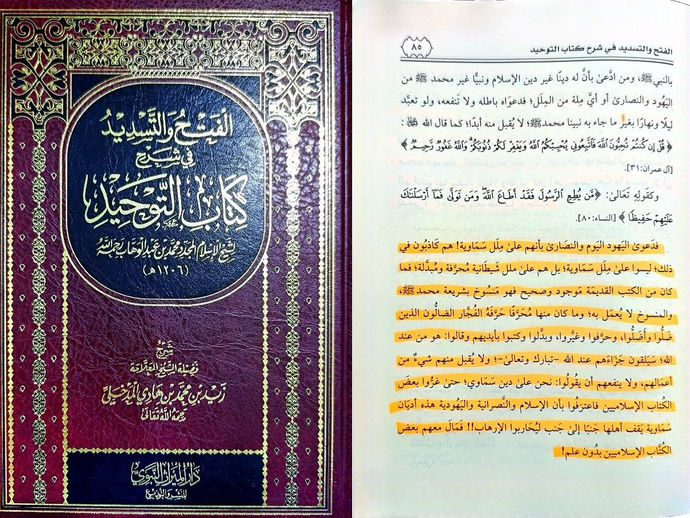 الفتح والتسديد
في شرح
كتاب التوحيد
لشيخ الإسلام المجدد محمد بن عبد الوهاب رحمه الله
(١٢٠٦هـ)
شرح
فضيلة الشيخ العلامة
زيد بن محمد بن هادي المدخلي
رحمه الله تعالى
دار الميراث النبوي
للنشر والتوزيع
الفتح والتسديد في شرح كتاب التوحيد
٨٥
بالنبي ﷺ، ومن ادَّعىٰ بأنَّ له دينًا غير دين الإسلام ونبيًّا غير محمد ﷺ من
اليهود والنصارىٰ أو أيِّ مِلة من المِلَل؛ فدعواه باطله ولا تنفعه، ولو تعبَّد
ليلًا ونهارًا بغير ما جاء به نبينا محمد ﷺ؛ لا يُقبل منه أبدًا؛ كما قال الله ﷻ:
﴿قُلْ إِن كُنتُمْ تُحِبُّونَ اللَّهَ فَاتَّبِعُونِي يُحْبِبْكُمُ اللَّهُ وَيَغْفِرْ لَكُمْ ذُنُوبَكُمْ وَاللَّهُ غَفُورٌ رَّحِيمٌ﴾
[آل عمران:٣١].
وكقولِهِ تَعالىٰ: ﴿مَّن يُطِعِ الرَّسُولَ فَقَدْ أَطَاعَ اللَّهَ وَمَن تَوَلَّى فَمَا أَرْسَلْنَاكَ
عَلَيْهِمْ حَفِيظًا﴾ [النساء:٨٠].
فدعوىٰ اليهود اليوم والنصارىٰ بأنهم علىٰ مِلَل سَماوية! هم كاذبُون في
ذلك؛ ليسوا علىٰ مِلَل سماوية؛ بل هم علىٰ ملل شيطانية مُحرَّفة ومُبدَّلة؛ فما
كان من الكتب القديمة مَوجود وصحيح فهو مَنسُوخ بشريعة محمد ﷺ،
والمنسوخ لا يُعمل به؛ وما كان منها مُحرَّفًا حَرَّفهُ الفُجَّار الضالُّون الذين
ضَلُّوا وأضَلُّوا، وحرَّفوا وغيَّروا، وبدَّلوا وكتبوا بأيديهم وقالوا: هو من عند
الله؛ سيَلقون جَزاءَهم عند الله -تبارك وتعالىٰ-؛ ولا يُقبل منهم شيءٌ من
أعمالهم، ولا ينفعهم أن يقولُوا: نحن علىٰ دين سَماوي؛ حتىٰ غرُّوا بعض
الكُتاب الإسلاميين فاعترفُوا بأن الإسلام والنَّصرانية واليهودية هذه أديَان
سَماوية يقف أهلها جَنبًا إلىٰ جَنب ليُحاربوا الإرهاب!! فَمَال معهم بعض
الكُتَّاب الإسلاميين بدُون علم!